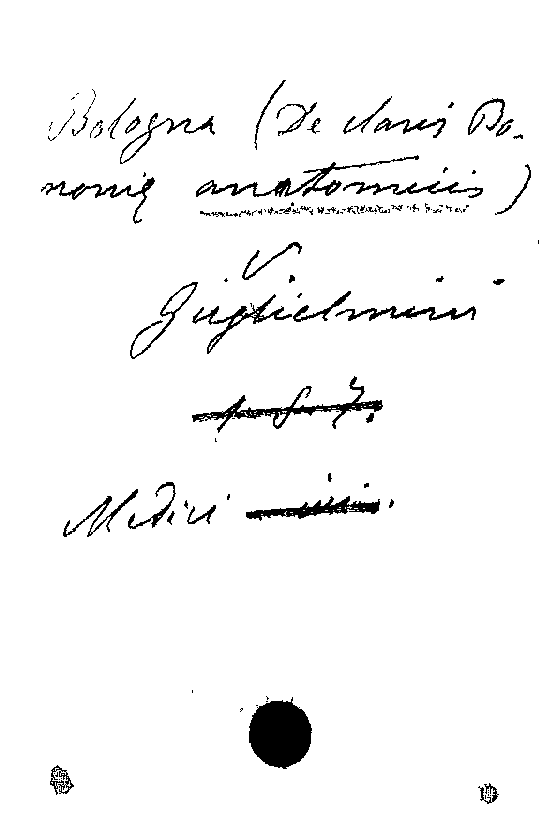 Bologna (De claris Bo-
nonię anatomicis)
V.
Guglielmini
Medici